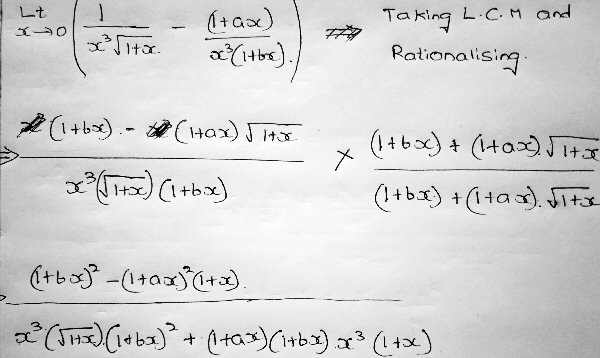 Lt x→0 ( 1 / x³√(1+x) − (1+ax) / x³(1+bx) ) ⇒ Taking L.C.M and
Rationalising.
⇒ (1+bx) − (1+ax)√(1+x) / x³(√(1+x))(1+bx) × (1+bx) + (1+ax).√(1+x) / (1+bx) + (1+ax).√(1+x)
(1+bx)² − (1+ax)²(1+x). / x³(√(1+x)).(1+bx)² + (1+ax)(1+bx).x³(1+x)